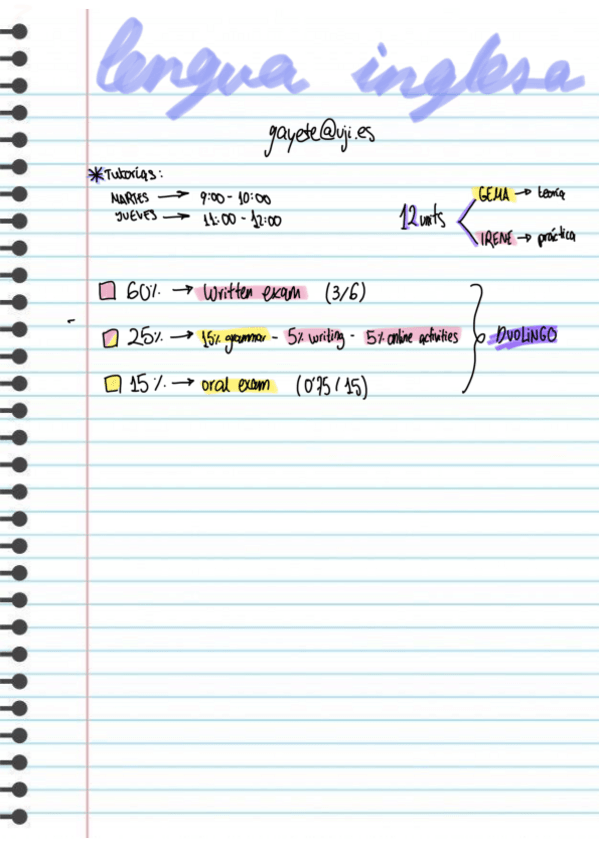 lengua inglesa
gayete@uji.es
*Tutorías:
MARTES → 9:00 - 10:00
JUEVES → 11:00 - 12:00
12 units
GEMA → teoría
IRENE → práctica
60% → written exam (3/6)
25% → 15% grammar - 5% writing - 5% online activities
DUOLINGO
15% → oral exam (0'75 / 15)